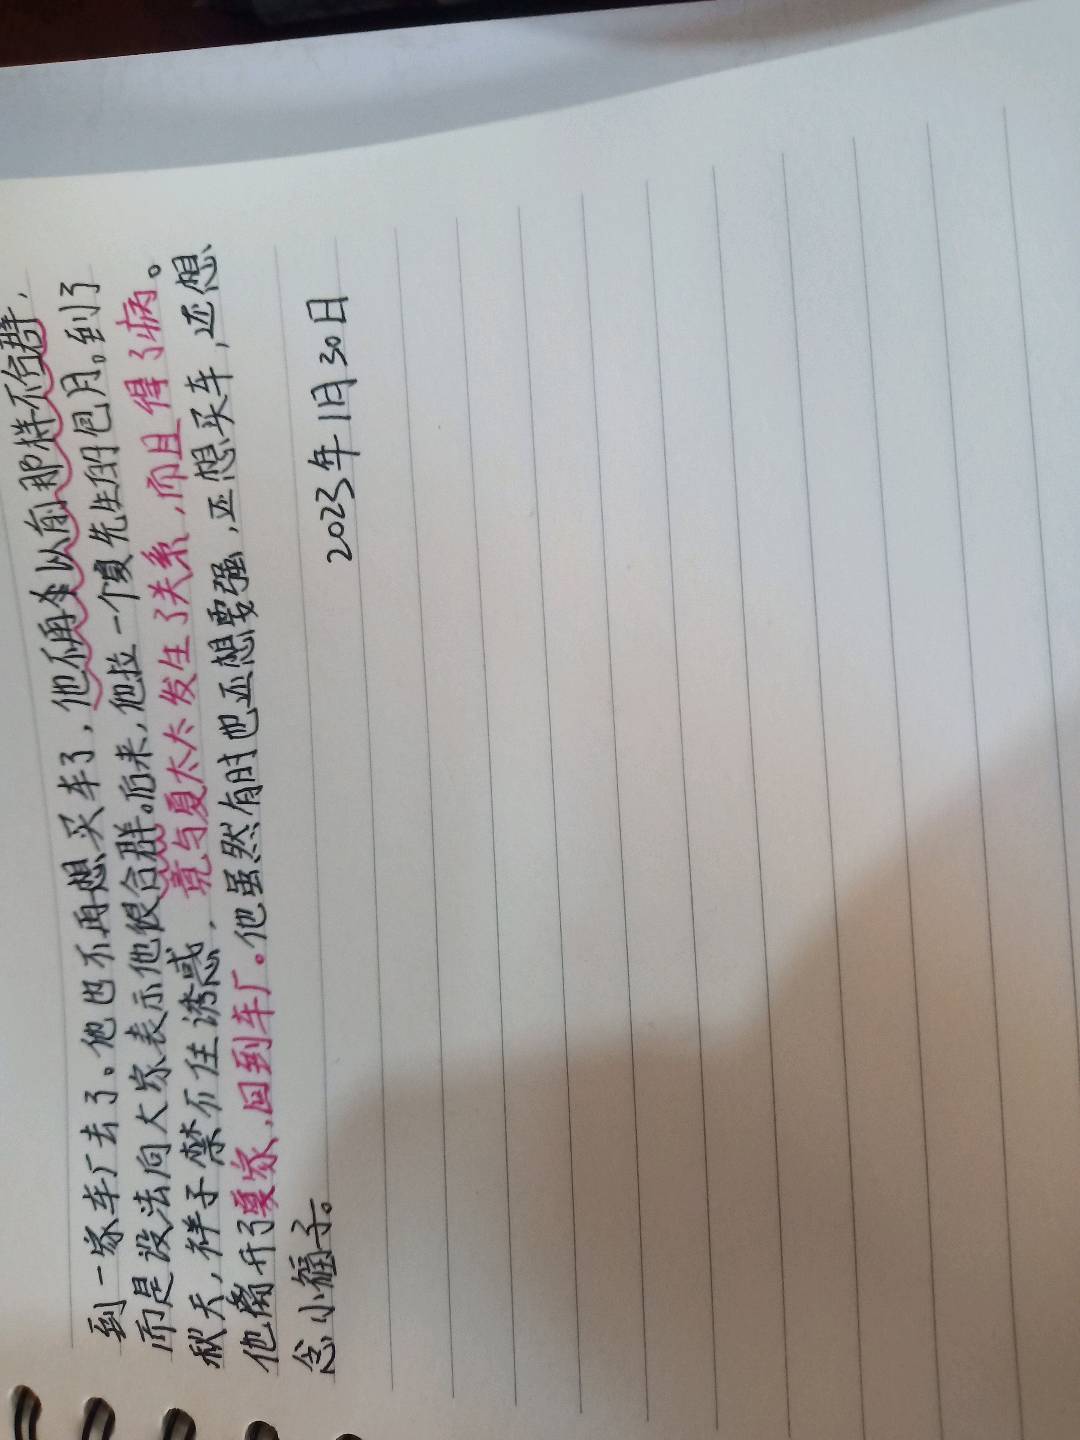 到一家车厂去了。他也不再想买车了，他不再像以前那样不合群，
而是设法向大家表示他很合群。后来，他拉一个夏先生的包月。到了
秋天，祥子禁不住诱惑，竟与夏太太发生了关系，而且得了病。
他离开了夏家，回到车厂。他虽然有时也还想要强，还想买车，还想
念小福子。
2023年1月30日